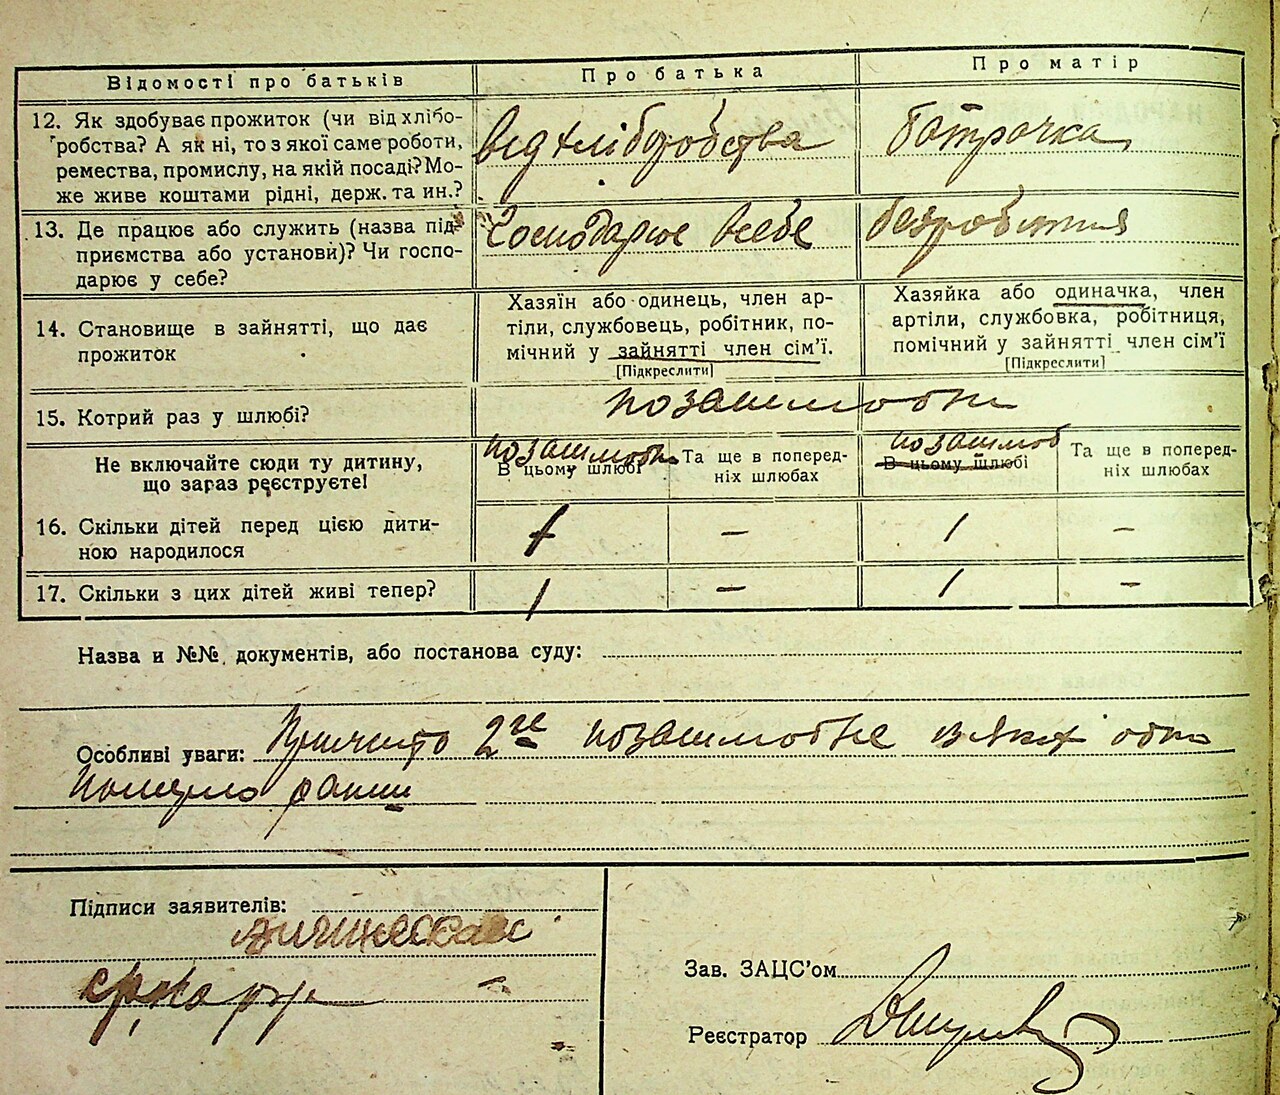 Відомості про батьків
Про батька
Про матір
12. Як здобуває прожиток (чи від хлібо-
робства? А як ні, то з якої саме роботи,
ремества, промислу, на якій посаді? Мо-
же живе коштами рідні, держ. та ин.?
від хліборобства
батрачка
13. Де працює або служить (назва під-
приємства або установи)? Чи госпо-
дарює у себе?
Господарює всебе
безробітня
14. Становище в зайнятті, що дає
прожиток
Хазяїн або одинець, член ар-
тіли, службовець, робітник, по-
мічний у зайнятті член сім'ї.
[Підкреслити]
Хазяйка або одиначка, член
артіли, службовка, робітниця,
помічний у зайнятті член сім'ї
[Підкреслити]
15. Котрий раз у шлюбі?
позашлюбни
Не включайте сюди ту дитину,
що зараз реєструєте!
позашлюбн
В цьому шлюбі
Та ще в поперед-
ніх шлюбах
позашлюб
В цьому шлюбі
Та ще в поперед-
ніх шлюбах
16. Скільки дітей перед цією дити-
ною народилося
1 – 1 –
17. Скільки з цих дітей живі тепер?
1 – 1 –
Назва и №№ документів, або постанова суду:
Особливі уваги: 2ге позашлюбне з яких одно
померло
Підписи заявителів:
Зав. ЗАЦС'ом
Реєстратор